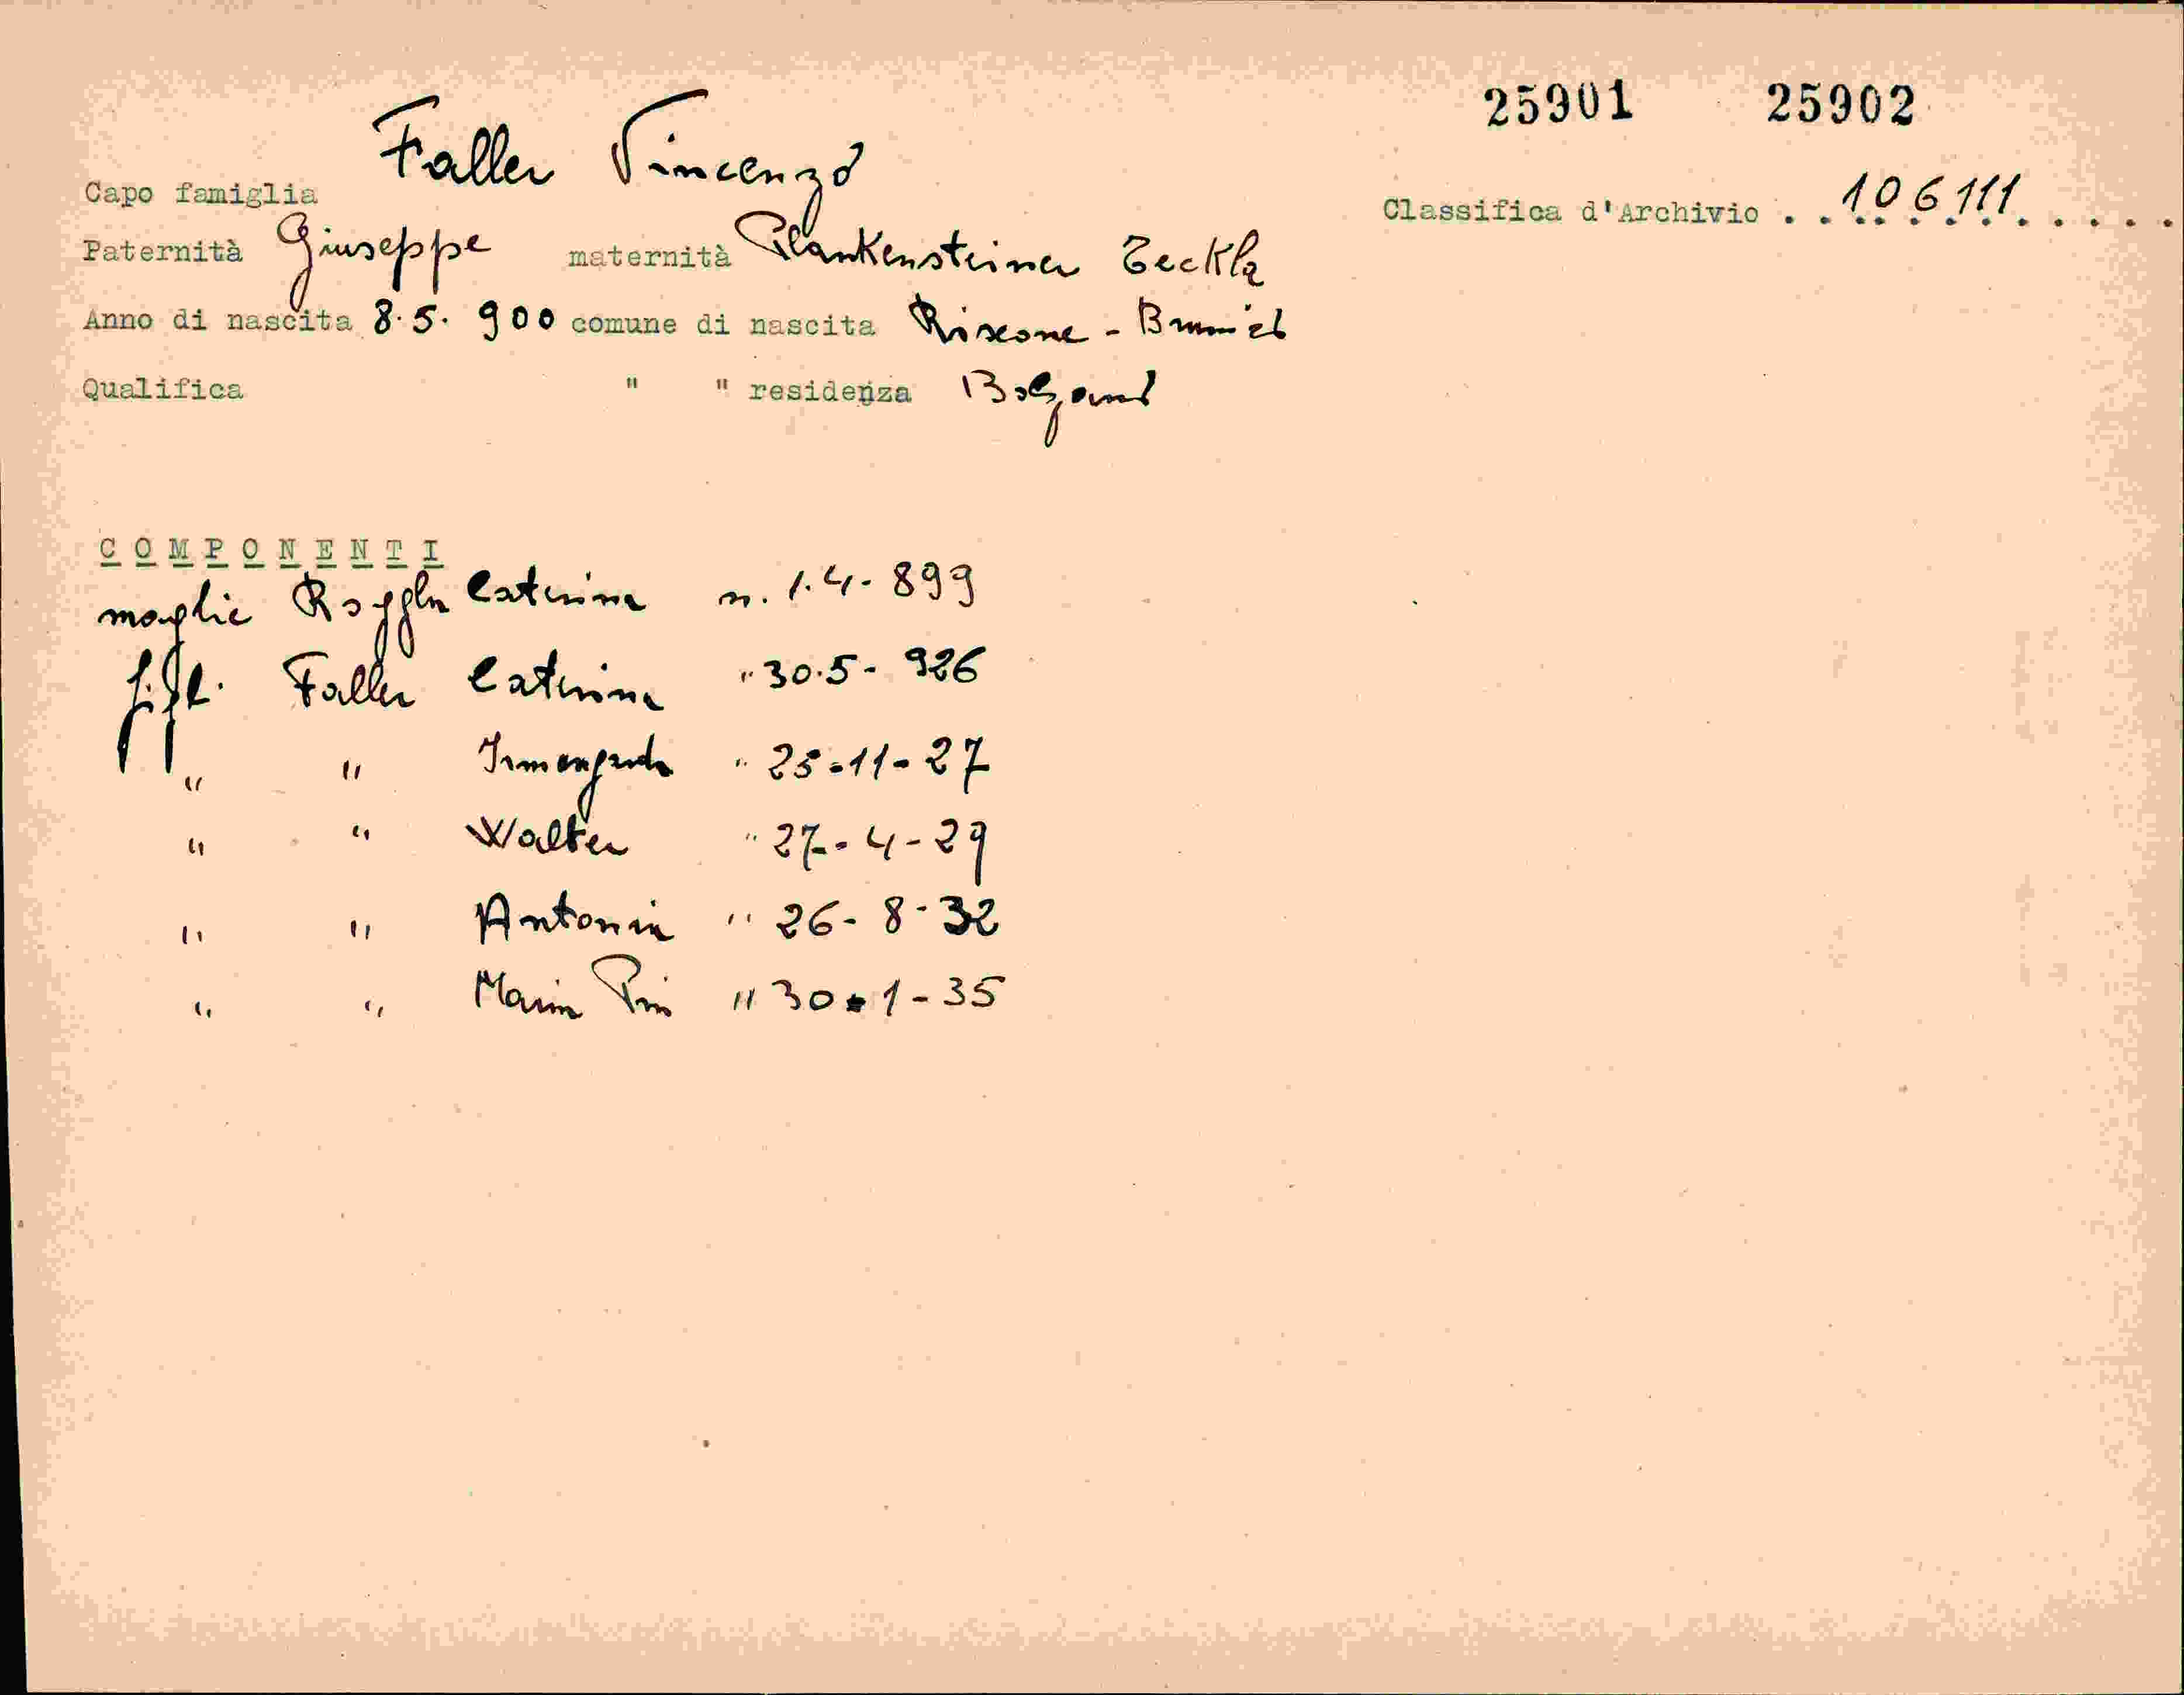 25901 25902
Capo famiglia Faller Vincenzo
Classifica d'Archivio . . 106111 . . . . .
Paternità Giuseppe maternità Plankensteiner Teckla
Anno di nascita 8.5.900 comune di nascita Riscone - Brunico
Qualifica " " residenza Bolzano
COMPONENTI
moglie Caterina n. 1.4-899
figl. Faller Caterina " 30.5-926
" " Irmengarda " 25-11-27
" " Walter " 27-4-29
" " Antonia " 26-8-32
" " Maria Pia " 30-1-35